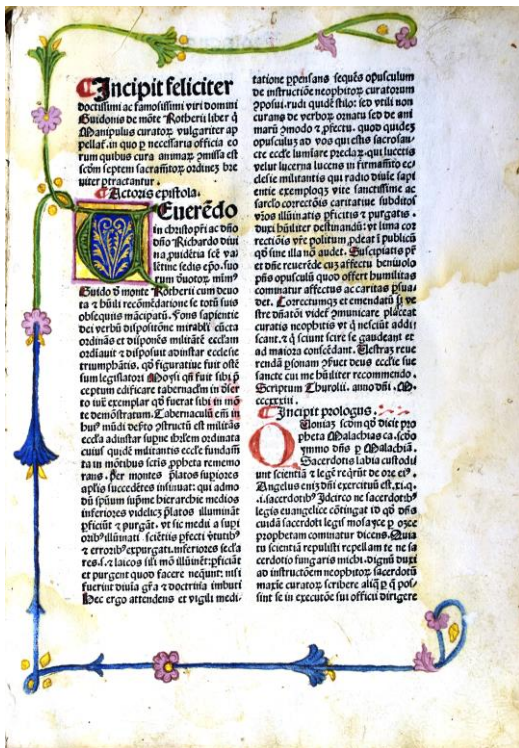 Incipit feliciter
doctissimi ac famosissimi viri domini
Guidonis de mõte Rotherii liber q̃
Manipulus curatoꝝ vulgariter ap
pellat᷑. in quo ꝑ necessaria officia eo
rum quibus cura animaꝝ ꝯmissa est
scḋm septem sacramẽtoꝝ ordinez bre
uiter ptractantur.
Actoris epistola.
Reuerẽdo
in christo pr̃i ac dño
dño Richardo diui
na ꝓuidẽtia scẽ va
lẽtine sedis ep̃o. suo
rum ðuotoꝝ mĩmꝰ
Guido ð monte Rotherii cum deuo
ta & hũili recõmẽdatione se totũ suis
obsequiis mãcipatũ. Fons sapientie
dei verbũ dispositõne mirabli cũcta
ordinãs et dispõnẽs militãtẽ eccĺam
ordiauit & disposuit ad instar ecclesie
triumphãtis. qð figuratiue fuit ostẽ
sum legislatori Moysi qñ fuit sibi p̃
ceptum edificare tabernacĺm in ðser
to iux̃ exemplar qð fuerat sibi in mõ
te demõstratum. Tabernaculũ em̃ in
huꝰ mũdi deẽto ꝯstructũ est militãs
eccĺa ad instar supne ihrĺem ordinata
cuiꝰ quidẽ militantis eccĺe fundam̃
ta in mõtibus scr̃is ꝓpheta rememo
rans. ꝑer montes p̃latos supiores
apĺis succedẽtes insinuat: qui admo
dũ sp̃uum supm̃e hierarchie medios
inferiores videlicꝫ p̃latos illuminãt
ꝑficiũt & purgãt. vt sic medii a supi
orib᷒ illuminati sciẽtiis ꝑfecti ꝟtutib᷒
& errorib᷒ expurgati. inferiores secĺa
res .s. & laicos sili mõ illumiẽt: ꝑficiãt
et purgent quod facere neqũnt: nisi
fuerint diuĩa gr̃a & doctrĩa imbuti
Hec ergo attendens et vigili medi-
tatione ꝑpensans sequẽs opusculum
de instructiõe neophitoꝝ curatorum
ꝯposui. rudi quidẽ stilo: sed vtili non
curans de verboꝝ ornatu sed de ani
marũ ꝯmodo & ꝓfectu. quod quidez
opusculuz ad vos qui estis sacrosan-
cte eccĺe lumiare preclaꝝ. qui lucetis
velut lucerna lucens in firmamẽto ec-
clesie militantis qui radio diuĩe sapi
entie exemploqꝫ vite sanctissime ac
sacr̃o correctõis caritatiue subditos
vr̃os illũinatis ꝑficitis & purgatis.
duxi hũiliter destinandũ: vt lima cor
rectiõis vr̃e politum ꝓdeat ĩ publicũ
qð sine illa nõ audet. Suscipiatis pr̃
et dñe reuerẽde cuꝫ affectu beniuolo
pñs opusculũ quod offert humilitas
cominatur affectus ac caritas ꝑsua-
det. Correctumqꝫ et emendatũ si ve
stre dñatõi videt᷑ ꝯmunicare placeat
curatis neophitis vt q̃ nesciũt addi
scant. & q̃ sciunt scire se gaudeant et
ad maiora conscẽdant. Uestraꝫ reue
rendã ꝑsonam ꝯseruet deus eccĺie sue
sancte cui me hũiliter recommendo.
Scriptum Thurolii. anno dñi. M.
ccccxxxiii.
Incipit prologus.
Quoniaꝫ scḋm qð dicit pro
pheta Malachias ca. scḋo
ymmo dñs ꝑ Malachiã.
Sacerdotis labia custodi
unt scientiã & legẽ reqr̃ũt de ore eiꝰ.
Angelus eniꝫ dñi exercituũ est. xi. q.
.i. sacerdotib᷒ Idcirco ne sacerdotib᷒
legis euangelice cõtingat id qð dñs
cuidã sacerdoti legis mosayce ꝑ ozee
prophetam cominatur dicens. Quia
tu scientiã repulisti repellam te ne sa
cerdotio fungaris michi. dignũ duxi
ad instructõem neophitoꝝ sacerdotũ
maxĩe curatoꝝ scribere aliq̃ ꝑ q̃ pos/
sint se in executõe sui officii dirigere